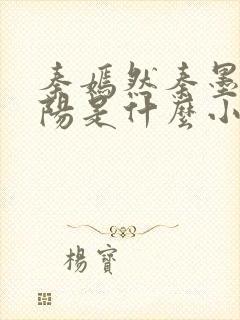 秦嫣然秦墨
陽是什麼小
楊寶